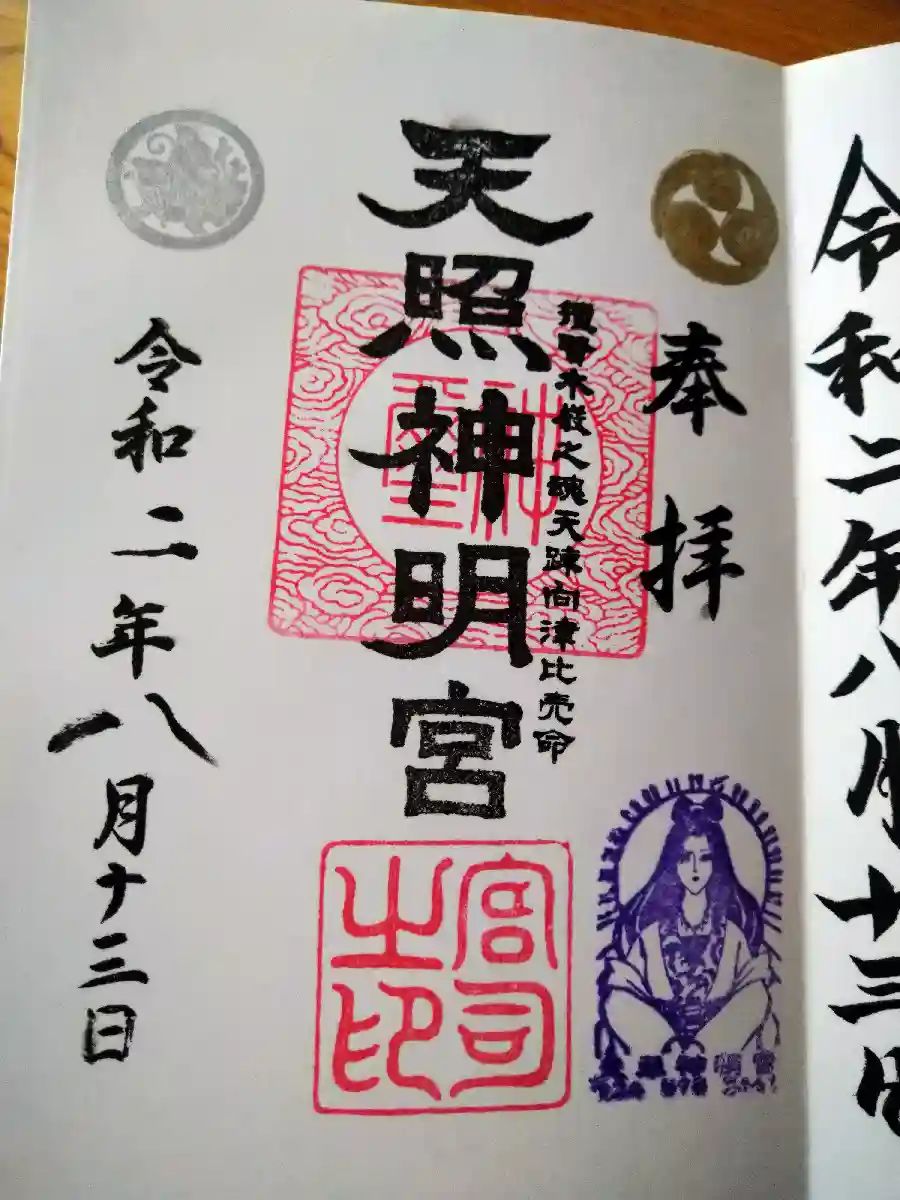 奉拝
撞賢木厳之魂天疎向津比売命
天照神明宮
宮司之印
令和二年八月十三日
令和二年八月十三日